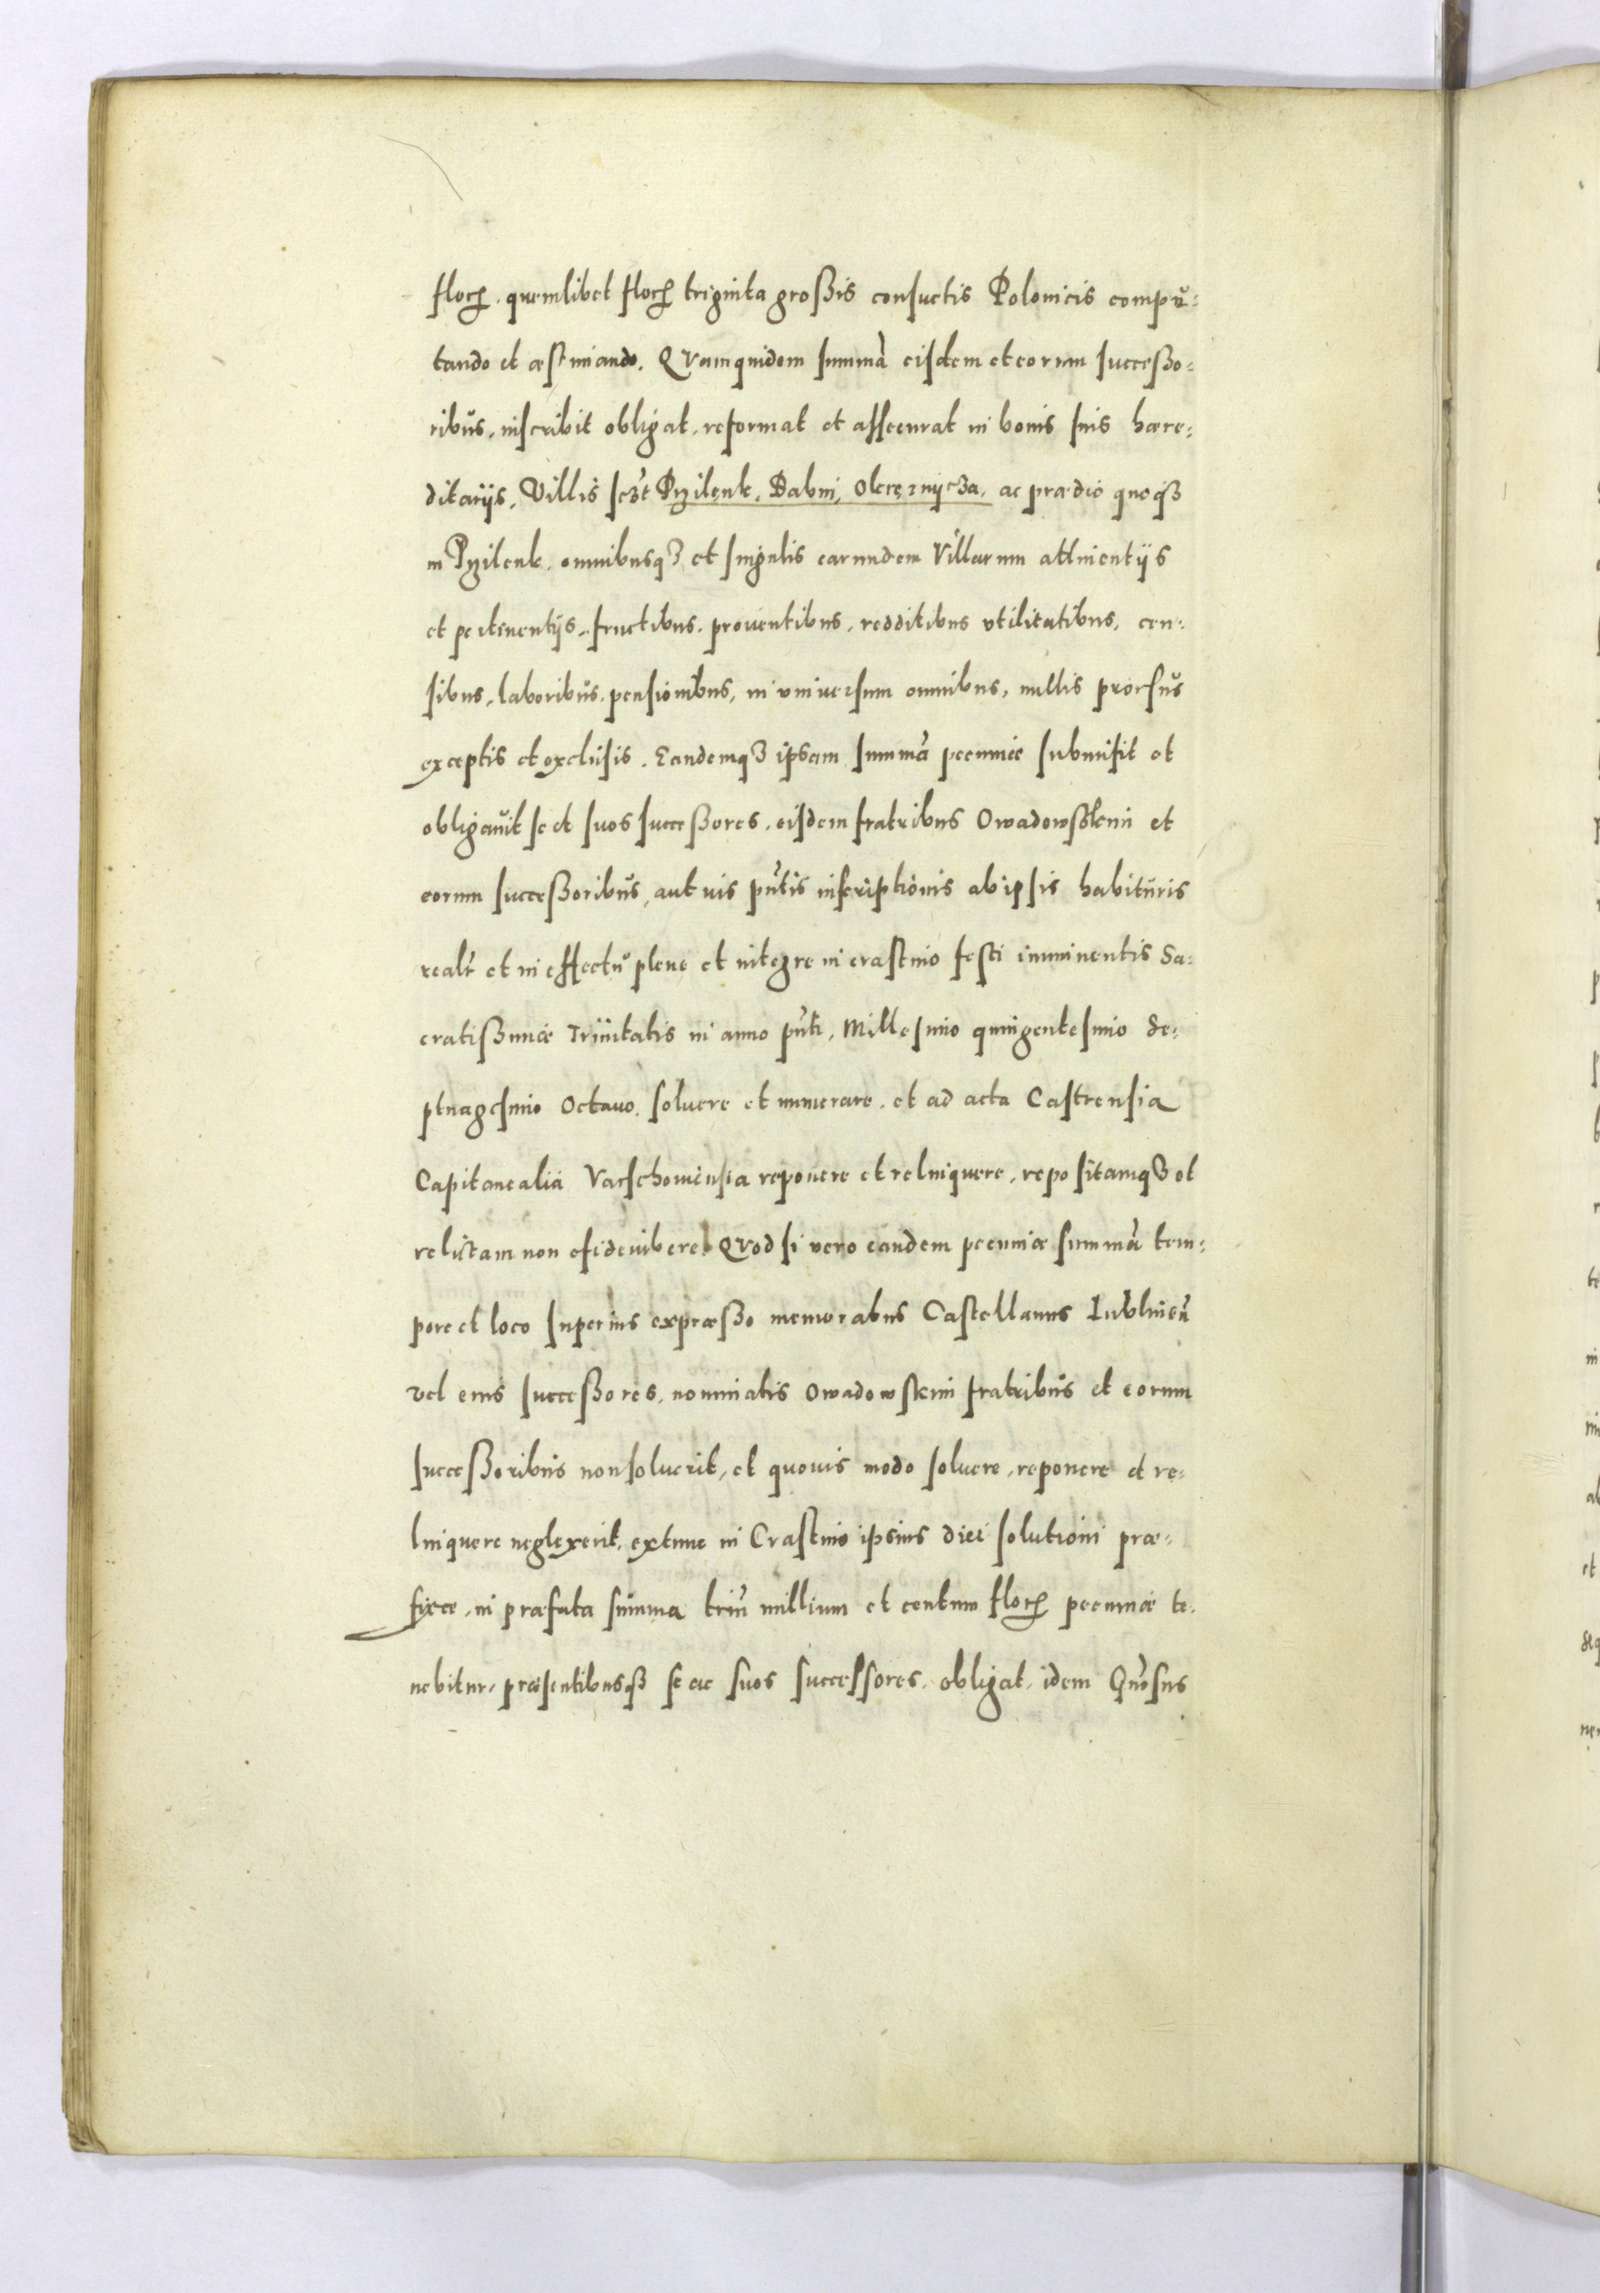 floꝝ. quemlibet floꝝ triginta großis consuetis Polonicis compu-
tando et æstimando. Quamquidem summã eisdem et eorum successo-
ribus, inscribit obligat, reformat et assecurat in bonis suis hære-
ditariis, Villis sczt Pzilenk, Dabni, Olcręznycza, ac prædio quoqȝ
in Pzilenk, omnibusqȝ et singulis earundem Villarum attinentijs
et pertinentijs, fructibus, prouentibus, redditibus vtilitatibus, cen-
sibus, laboribus, pensionibus, in vniuersum omnibus, nullis prorsus
exceptis et exclusis. Eandemqȝ ipsam summã pecuniæ submisit et
obligauit se et suos successores, eisdem fratribus Owadowsskimi et
eorum successoribus, aut uis pñtis inscriptionis ab ipsis habituris
realr et in effectu plene et integre in crastino festi imminentis Sa-
cratissimæ Trinitatis in anno pñti, Millesimo quingentesimo Se-
ptuagesimo Octauo, soluere et numerare, et ad acta Castrensia
Capitanealia Varschouiensia reponere et relinquere, repositamqȝ et
relictam non
Quod si vero eandem pecuniæ summã tem-
pore et loco superius expræsso memoratus Castellanus Lublineñ
vel eius successores, nominatis Owadowskimi fratribus et eorum
successoribus non soluerit, et quouis modo soluere, reponere et re-
linquere neglexerit, extunc in Crastino ipsius diei solutioni præ-
fixæ, in præfata summa triũ millium et centum floꝝ pecuniæ te-
nebitur, præsentibusqȝ se ac suos successores, obligat, idem Gñosus